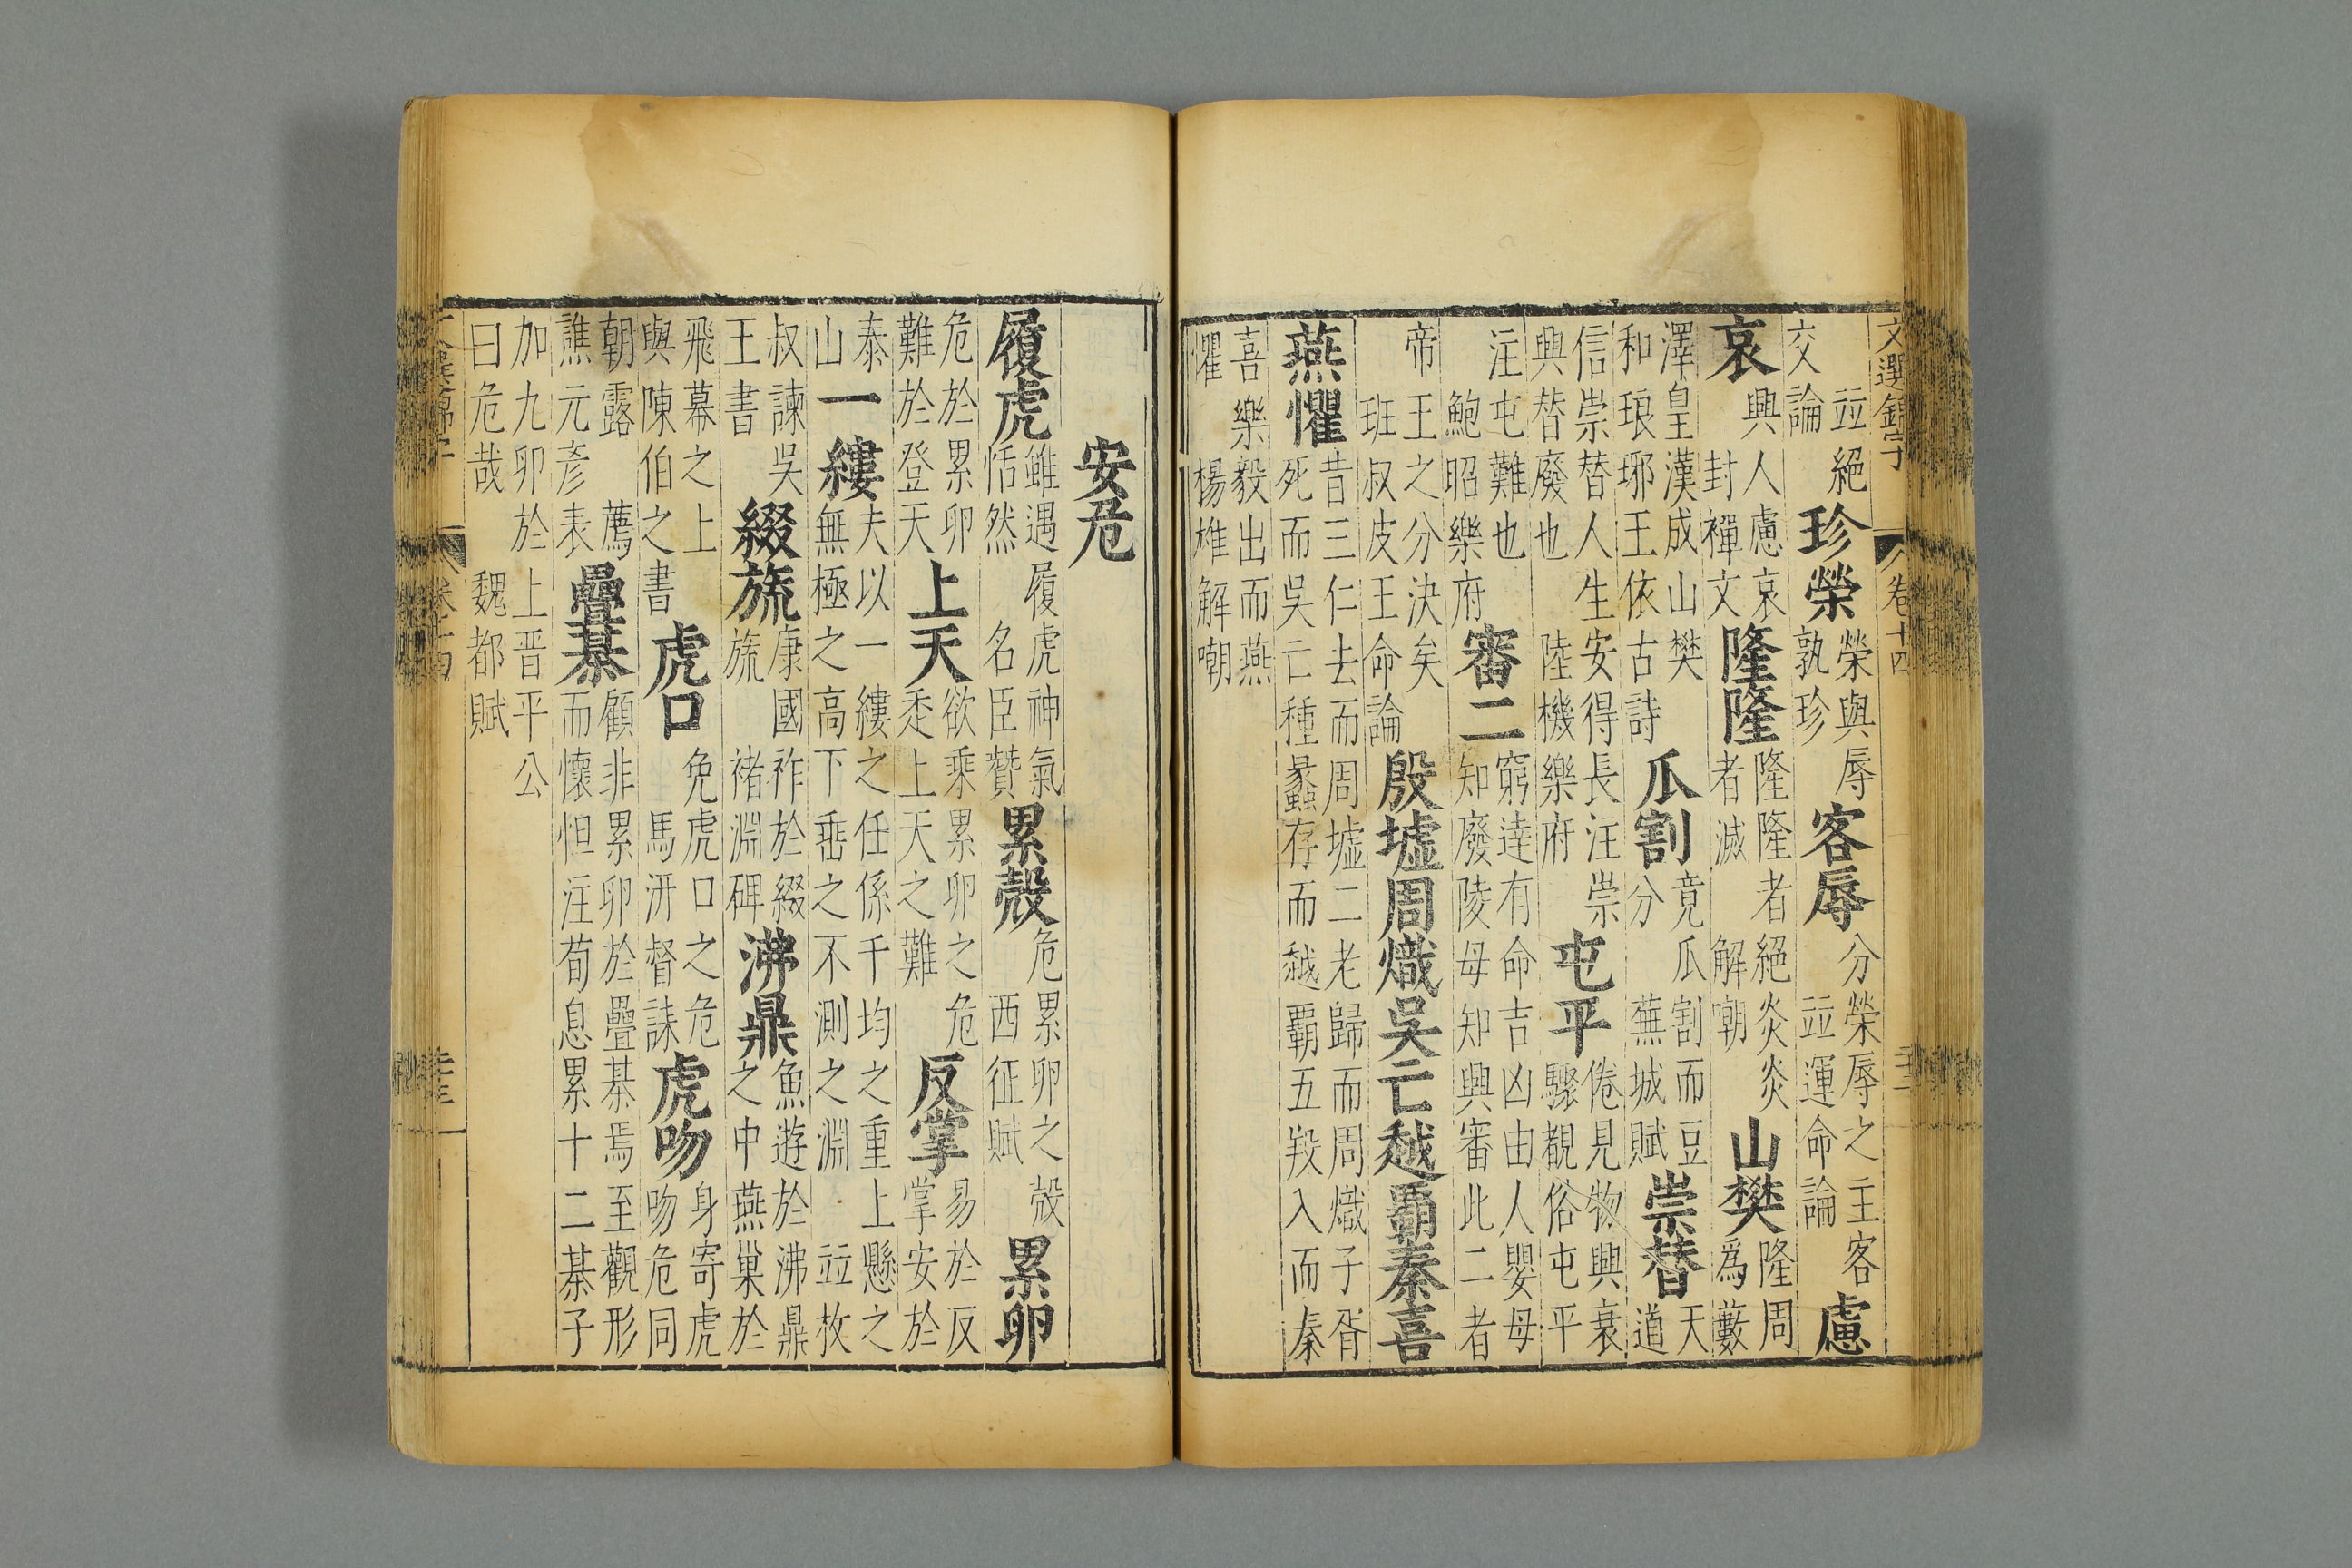 文選錦字 卷十四
並絕交論珍榮榮與辱孰珍客辱分榮辱之主客並運命論慮
哀興人慮哀封禪文隆隆隆隆者絕炎炎者滅解嘲山樊隆周爲藪
澤皇漢成山樊和琅琊王依古詩瓜割竟瓜割而豆分蕪城賦崇替天道
信崇替人生安得長注崇興替廢也陸機樂府屯平倦見物興衰驟覩俗屯平
注屯難也鮑昭樂府審二窮達有命吉凶由人嬰母知廢陵母知興審此二者
帝王之分決矣班叔皮王命論殷墟周熾吳亡越霸秦喜
燕懼昔三仁去而周墟二老歸而周熾子胥死而吳亡種蠡存而越覇五羖入而秦
喜樂毅出而燕懼楊雄解嘲
安危
履虎雖遇履虎神氣恬然名臣贊累殼危累卵之殼西征賦累卵
危於累卵難於登天上天欲乘累卵之危走上天之難反掌易於反掌安於
泰山一縷夫以一縷之任係千均之重上懸之無極之高下垂之不測之淵並枚
叔諫吳王書綴旒康國祚於綴旒褚淵碑沸鼎魚遊於沸鼎之中燕巢於
飛幕之上與陳伯之書虎口免虎口之危馬汧督誄虎吻身寄虎吻危同
朝露薦譙元彥表疊棊顧非累卵於疊棊焉至觀形而懷怛注荀息累十二棊子
加九卵於上晋平公曰危哉魏都賦